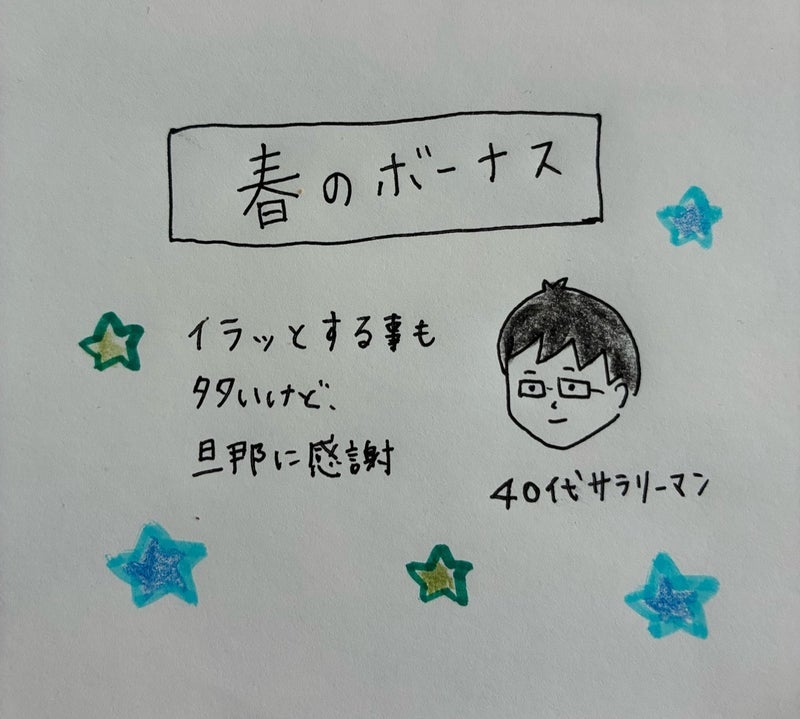 春のボーナス
イラッとする事も
多いけど、
旦那に感謝
40代サラリーマン